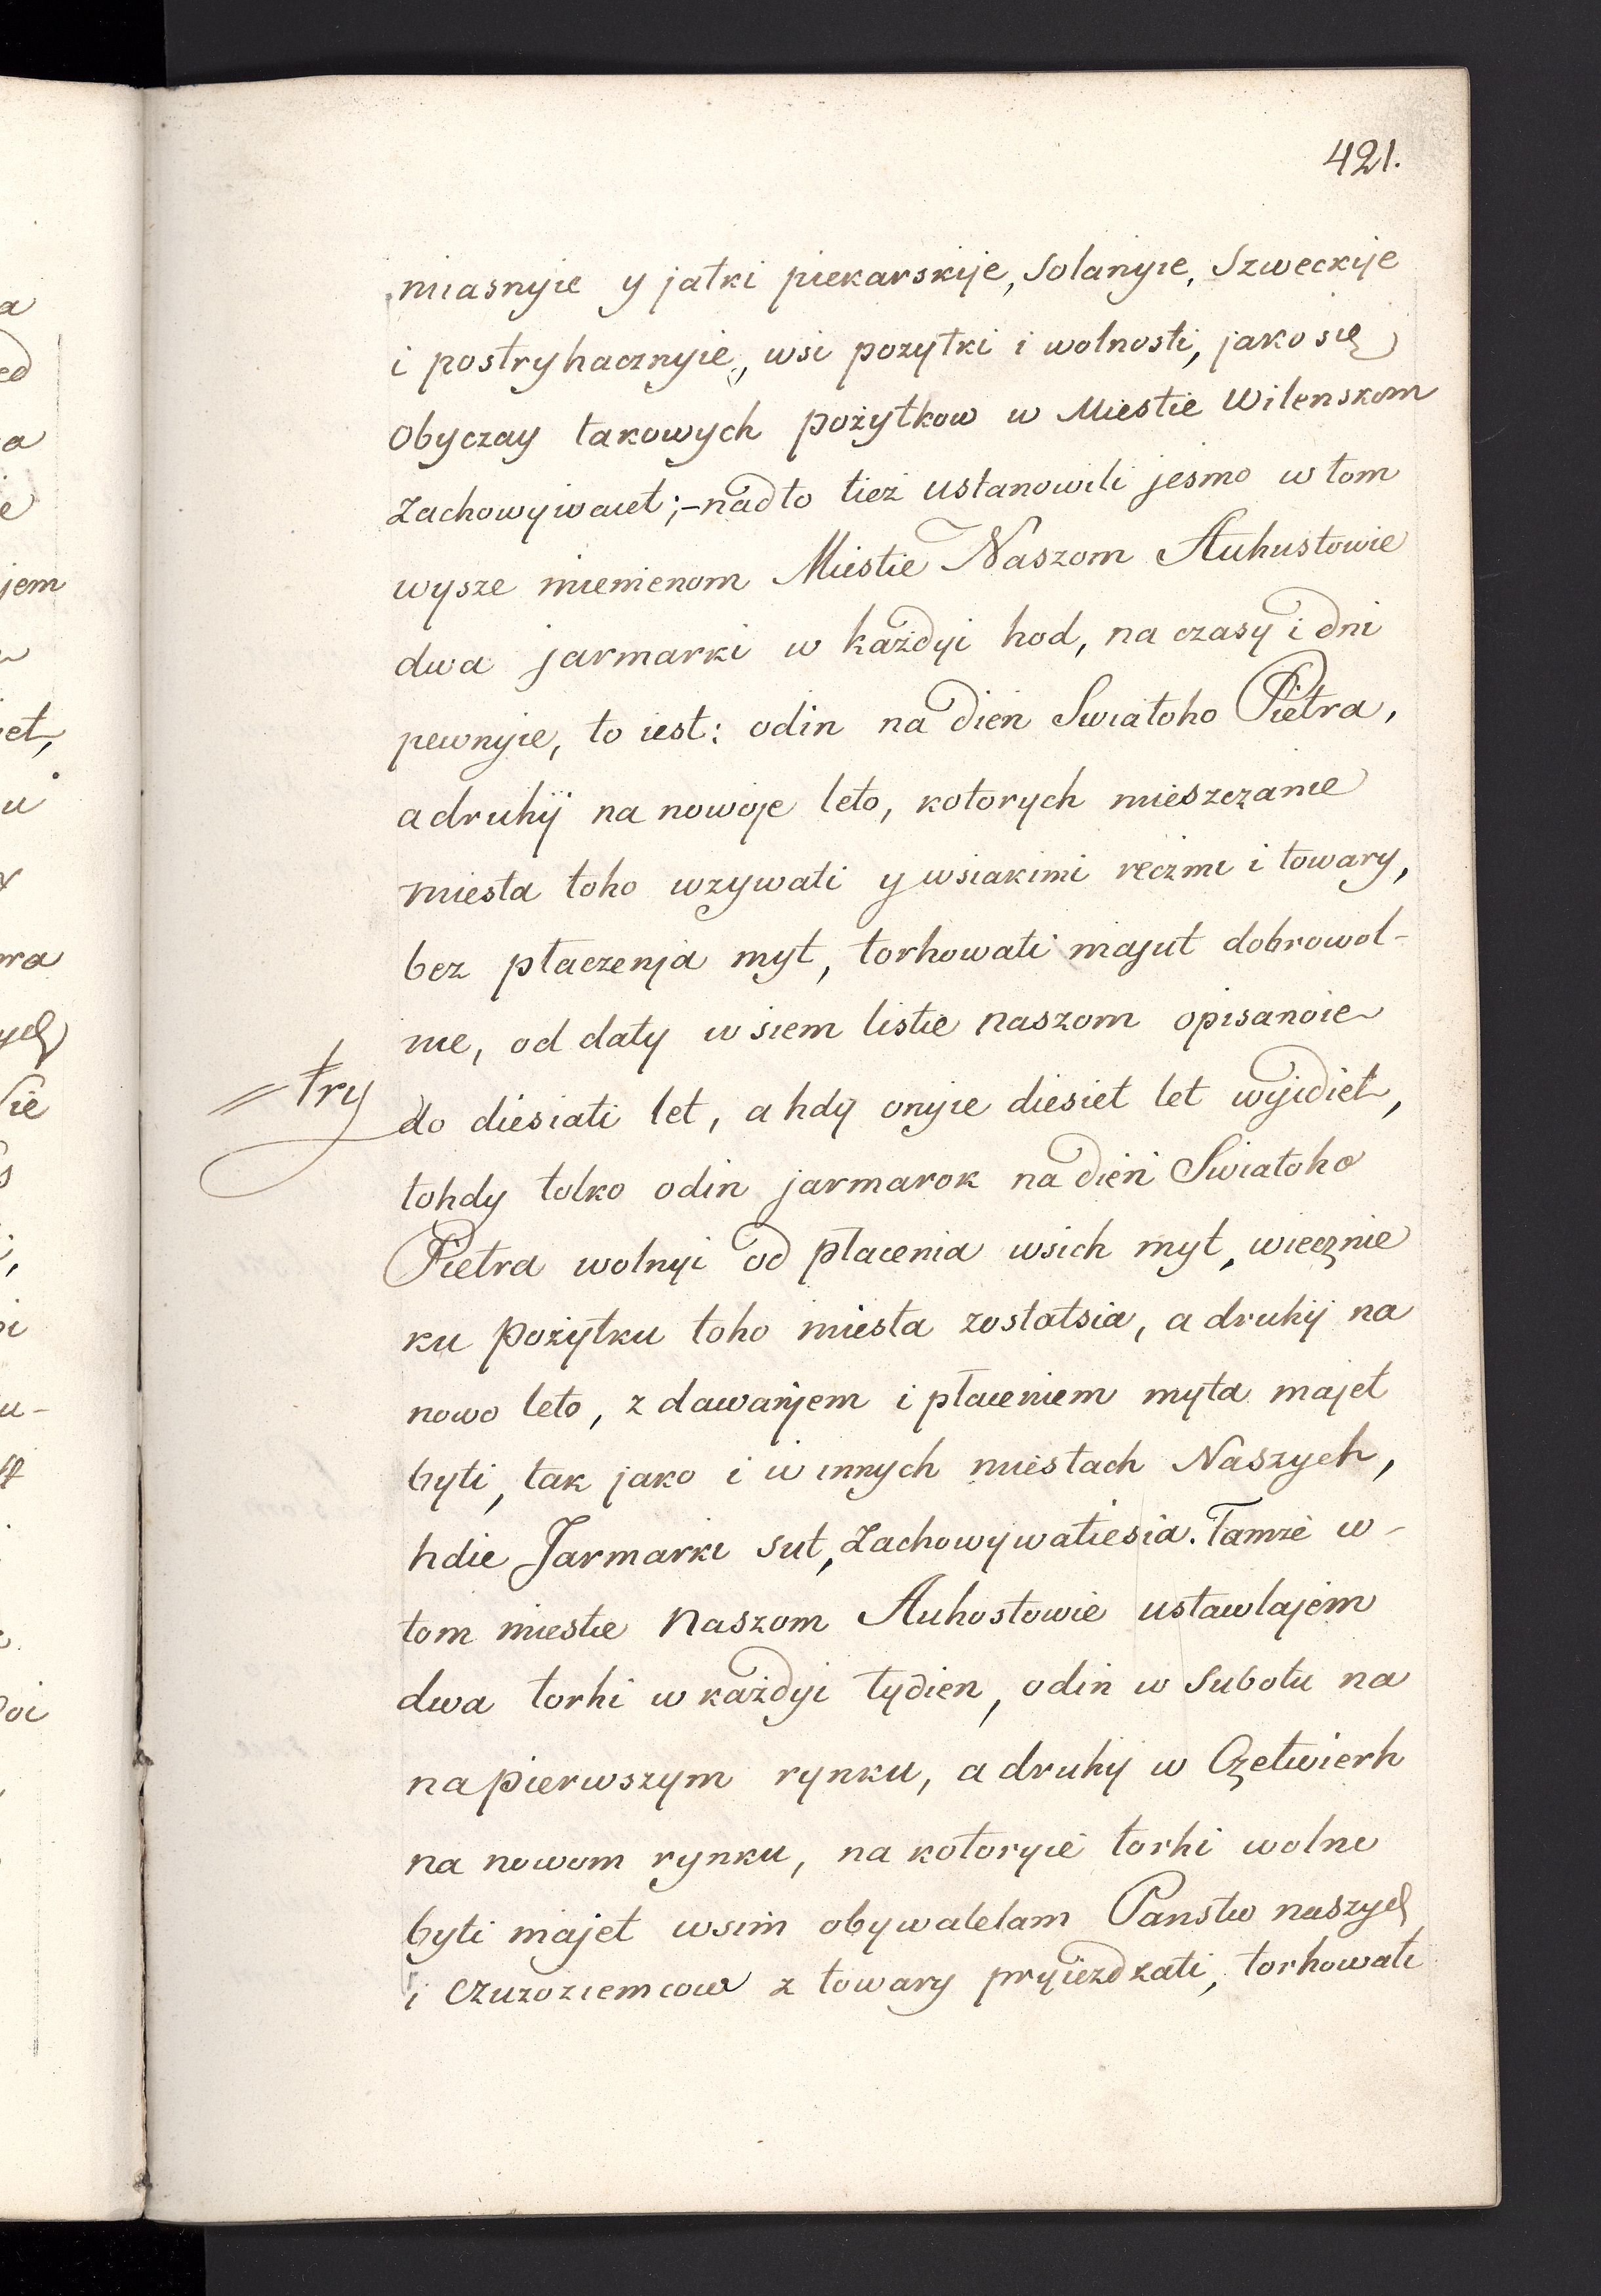 421.
miasnyie y jatki piekarskije, Solanyie, Szweckije
i postryhacznyie, wsi pozytki i wolnosti, jako się
Obyczay takowych pożytkow w Miestie Wilenskom
Zachowywaiet;–nadto tież ustanowili jesmo w tom
wysze mienienom Miestie Naszom Auhustowie
dwa jarmarki w każdyi hod, na czasy i dni
pewnyie, to iest: odin na dień Swiatoho Pietra,
a druhij na nowoje leto, kotorych mieszczanie
miesta toho wzywati y wsiakimi reczmi i towary,
bez płaczenja myt, torhowati majut dobrowol-
nie, od daty w siem listie naszom opisanoie
= try
do diesiati let, a hdy onyie diesiet let wyjdiet,
tohdy tolko odin jarmarok na dień Swiatoho
Pietra wolnyi od płacenia wsich myt, wiecznie
ku pożytku toho miesta zostatsia, a druhij na
nowo leto, z dawanjem i płaceniem myta majet
byti, tak jako i w innych miestach Naszych,
hdie Jarmarki sut, Zachowywatiesia. Tamże w-
tom miestie Naszom Auhostowie ustawlajem
dwa torhi w każdyi tydień, odin w Subotu na
na pierwszym rynku, a druhij w Czetwierh
na nowom rynku, na kotoryie torhi wolno
byti majet wsim obywatelam Panstw naszych
i czuzoziemcow z towary pryiezdzati, torhowati